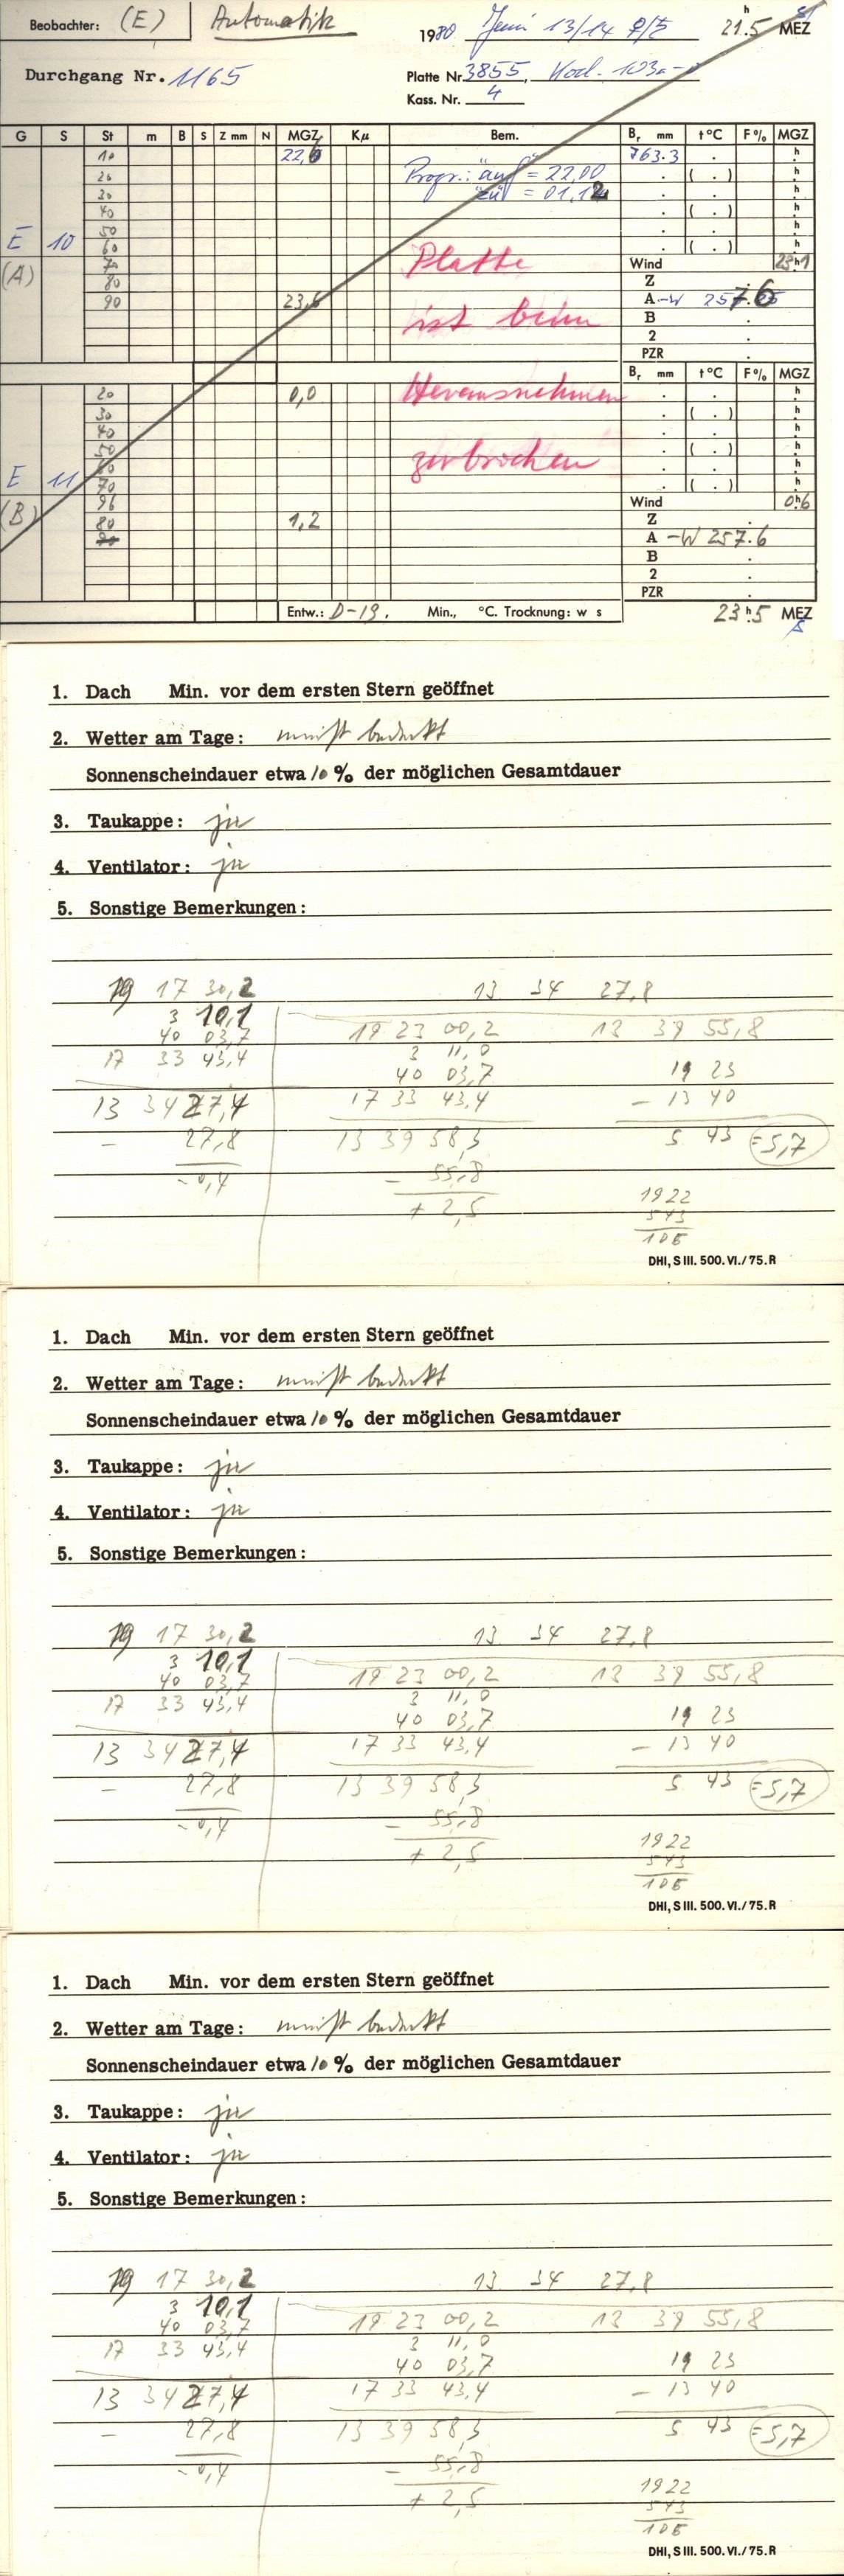 Beobachter: (E) Automatik 1980 Juni 13/14 21 h .5 MEZ
Durchgang Nr. 1165 Platte Nr 3855, Kod. 103a-
Kass. Nr. 4
G S St m B S Z mm N MGZ Kμ Bem. Br mm t°C F% MGZ
10 22,6 763.3 . h
20 Progr.: "auf" = 22,00 . ( . ) h
30 "zu" = 01,12 . . h
40 . ( . ) h
50 . . h
E 10 60 Platte . ( . ) h
(A) 70 Wind 23 h 1
80 Z .
90 23,6 ist beim A -W 257.6
B .
2 .
PZR .
Br mm t°C F% MGZ
20 0,0 Herausnehmen . . h
30 . ( . ) h
40 . . h
50 zerbrochen . ( . ) h
60 . . h
E 11 70 . ( . ) h
(B) 96 Wind 0 h 6
80 1,2 Z .
90 A -W 257.6
B .
2 .
PZR .
Entw.: D-19. Min., °C. Trocknung: w s 23 h .5 MEZ
1. Dach Min. vor dem ersten Stern geöffnet
2. Wetter am Tage: meist bedeckt
Sonnenscheindauer etwa 10 % der möglichen Gesamtdauer
3. Taukappe: ja
4. Ventilator: ja
5. Sonstige Bemerkungen:
19 17 30,2 13 34 27,8
3 10,1
40 03,7 19 23 00,2 13 39 55,8
17 33 43,4 3 11,0
40 03,7 19 23
13 34 27,4 17 33 43,4 - 13 40
- 27,8 13 39 58,3 5 43 =5,7
-0,4 - 55,8
+ 2,5 1922
543
105
DHI, S III. 500. VI./75. R
1. Dach Min. vor dem ersten Stern geöffnet
2. Wetter am Tage: meist bedeckt
Sonnenscheindauer etwa 10 % der möglichen Gesamtdauer
3. Taukappe: ja
4. Ventilator: ja
5. Sonstige Bemerkungen:
19 17 30,2 13 34 27,8
3 10,1
40 03,7 19 23 00,2 13 39 55,8
17 33 43,4 3 11,0
40 03,7 19 23
13 34 27,4 17 33 43,4 - 13 40
- 27,8 13 39 58,3 5 43 =5,7
-0,4 - 55,8
+ 2,5 1922
543
105
DHI, S III. 500. VI./75. R
1. Dach Min. vor dem ersten Stern geöffnet
2. Wetter am Tage: meist bedeckt
Sonnenscheindauer etwa 10 % der möglichen Gesamtdauer
3. Taukappe: ja
4. Ventilator: ja
5. Sonstige Bemerkungen:
19 17 30,2 13 34 27,8
3 10,1
40 03,7 19 23 00,2 13 39 55,8
17 33 43,4 3 11,0
40 03,7 19 23
13 34 27,4 17 33 43,4 - 13 40
- 27,8 13 39 58,3 5 43 =5,7
-0,4 - 55,8
+ 2,5 1922
543
105
DHI, S III. 500. VI./75. R